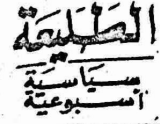 الطليعة
سياسية
أسبوعية